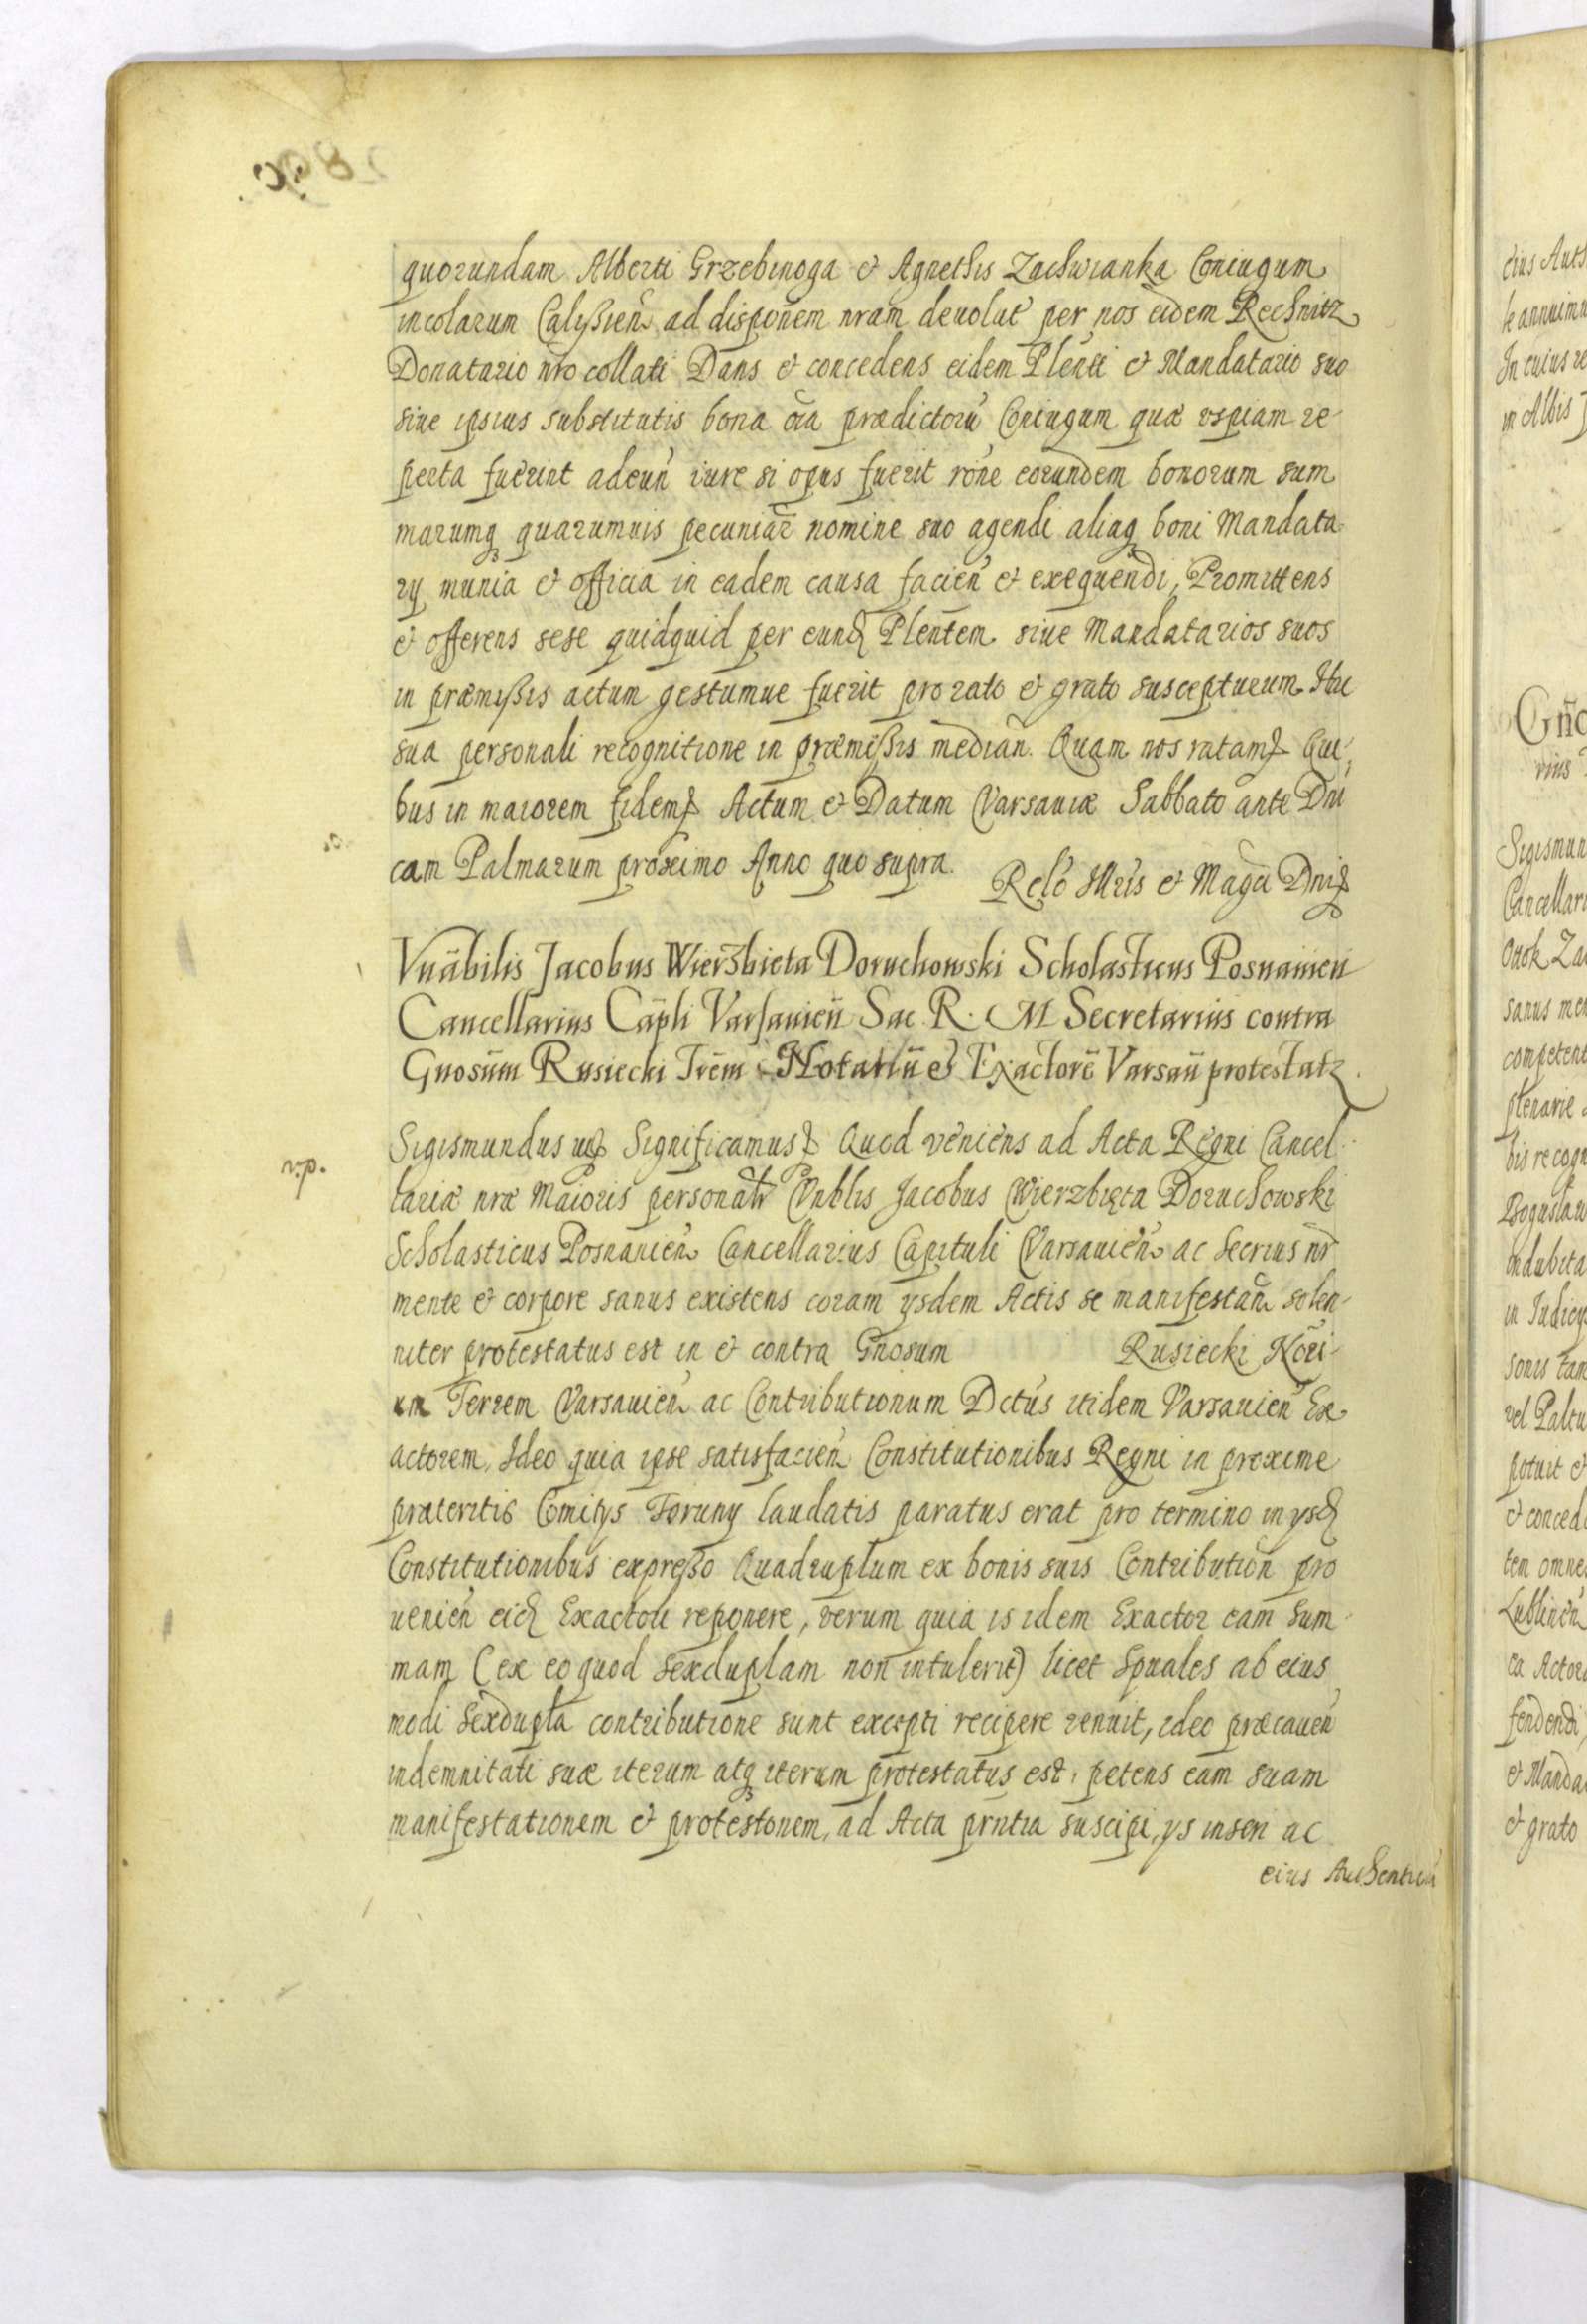 quorundam Alberti Grzebinoga et Agnethis Zachwianka Coniugum
incolarum Calyssien̄ ad disponem nram deuolut per nos eidem Rechnitz
Donatario nro collati Dans et concedens eidem Plenti et Mandatario suo
siue ipsius substitutis bona oia prædictorū Coniugum quæ vspiam re-
perta fuerint adeun̄ iure si opus fuerit rōne eorundem bonorum sum
marumq quarumuis pecuniar nomine suo agendi aliaq boni Mandata-
rij munia et officia in eadem causa facien̄ et exequendi, Promittens
et offerens sese quidquid per eund Plentem siue Mandatarios suos
in præmissis actum gestumue fuerit pro rato et grato suscepturum. Hac
sua personali recognitione in præmissis median̄. Quam nos ratam Qui-
bus in maiorem fidem Actum et Datum Varsauiæ Sabbato ante Dni
cam Palmarum proximo Anno quo supra.
Relō Illris et Magci Dni
Vnābilis Jacobus Wierzbieta Doruchowski Scholasticus Posnanien̄
Cancellarius Cāpli Varsauien̄ Sac R. M Secretarius contra
Gnosūm Rusiecki Trēm Notariū et Exactorē Varsaū protestatz
v.p.
Sigismundus Significamus Quod veniens ad Acta Regni Cancel-
lariæ nræ Maioris personalr Vnblis Jacobus Wierzbięta Doruchowski
Scholasticus Posnanien̄ Cancellarius Capituli Varsauien̄ ac Secrius nr
mente et corpore sanus existens coram ysdem Actis se manifestan̄ solen-
niter protestatus est in et contra Gnosum Rusiecki Nori-
um Terrem Varsauien̄ ac Contributionum Dctus itidem Varsauien̄ Ex
actorem, Ideo quia ipse satisfacien̄ Constitutionibus Regni in proxime
præteritis Comitys Toruny laudatis paratus erat pro termino in ysd
Constitutionibus expresso Quadruplum ex bonis suis Contribution̄ pro
uenien̄ eid Exactori reponere, verum quia is idem Exactor eam Sum-
mam (ex eo quod sexduplam non intulerit) licet Spuales ab eius
modi Sexdupla contributione sunt excepti recipere renuit, ideo præcauen̄
indemnitati suæ iterum atq iterum protestatus est, petens eam suam
manifestationem et protestonem, ad Acta prntia suscipi, ys inseri ac
eius Authenticū